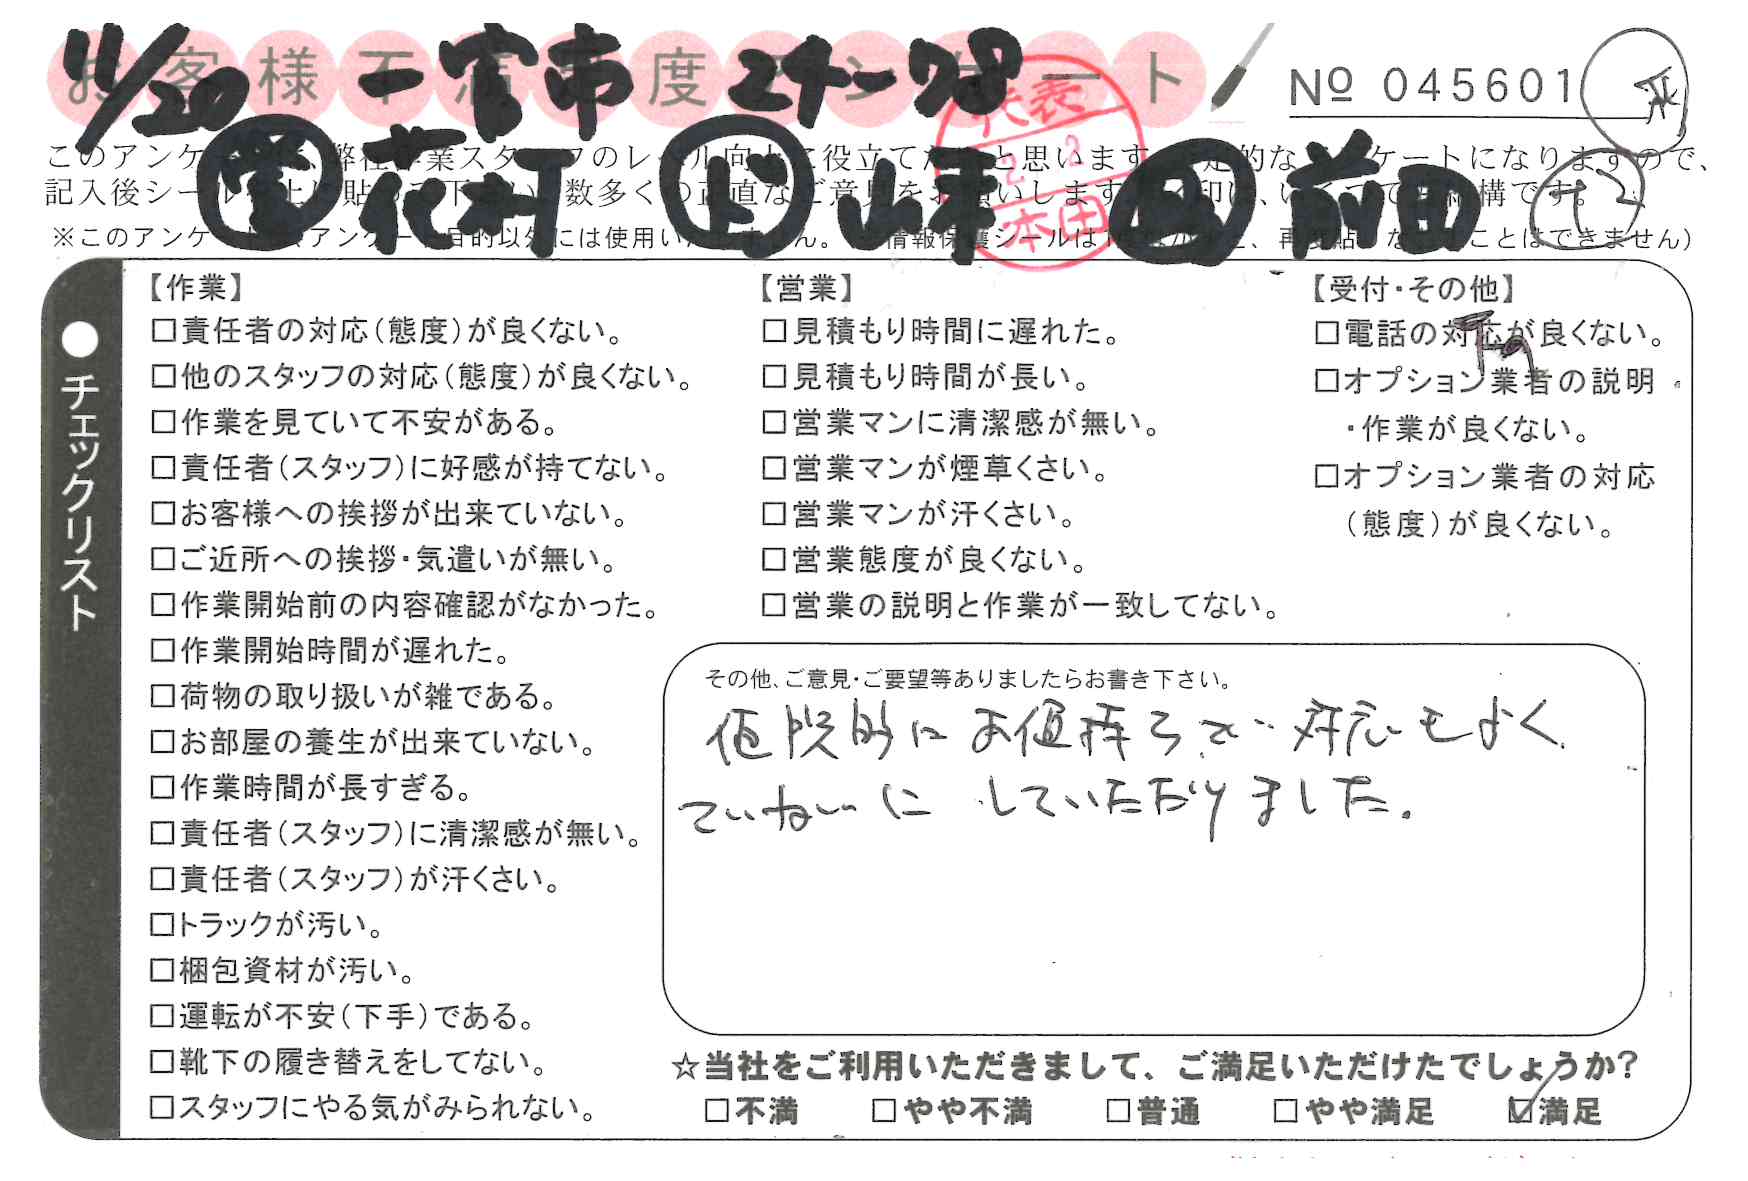 11/20 一宮市 24-78
お客様不満足度アンケート
№ 045601
営 花村 ド 山本 助 前田
代表
本田
このアンケートは、弊社作業スタッフのレベル向上に役立てたいと思います。
記入後シールを上に貼って下さい。数多くの正直なご意見をお願いします。
※このアンケートはアンケート目的以外には使用いたしません。
再度貼りなおすことはできません)
●チェックリスト
【作業】
□責任者の対応(態度)が良くない。
□他のスタッフの対応(態度)が良くない。
□作業を見ていて不安がある。
□責任者(スタッフ)に好感が持てない。
□お客様への挨拶が出来ていない。
□ご近所への挨拶・気遣いが無い。
□作業開始前の内容確認がなかった。
□作業開始時間が遅れた。
□荷物の取り扱いが雑である。
□お部屋の養生が出来ていない。
□作業時間が長すぎる。
□責任者(スタッフ)に清潔感が無い。
□責任者(スタッフ)が汗くさい。
□トラックが汚い。
□梱包資材が汚い。
□運転が不安(下手)である。
□靴下の履き替えをしてない。
□スタッフにやる気がみられない。
【営業】
□見積もり時間に遅れた。
□見積もり時間が長い。
□営業マンに清潔感が無い。
□営業マンが煙草くさい。
□営業マンが汗くさい。
□営業態度が良くない。
□営業の説明と作業が一致してない。
【受付・その他】
□電話の対応が良くない。
□オプション業者の説明
・作業が良くない。
□オプション業者の対応
(態度)が良くない。
その他、ご意見・ご要望等ありましたらお書き下さい。
値段的にお値打ちで対応もよく
ていねいにしていただけました。
☆当社をご利用いただきまして、ご満足いただけたでしょうか?
□不満 □やや不満 □普通 □やや満足 ☑満足